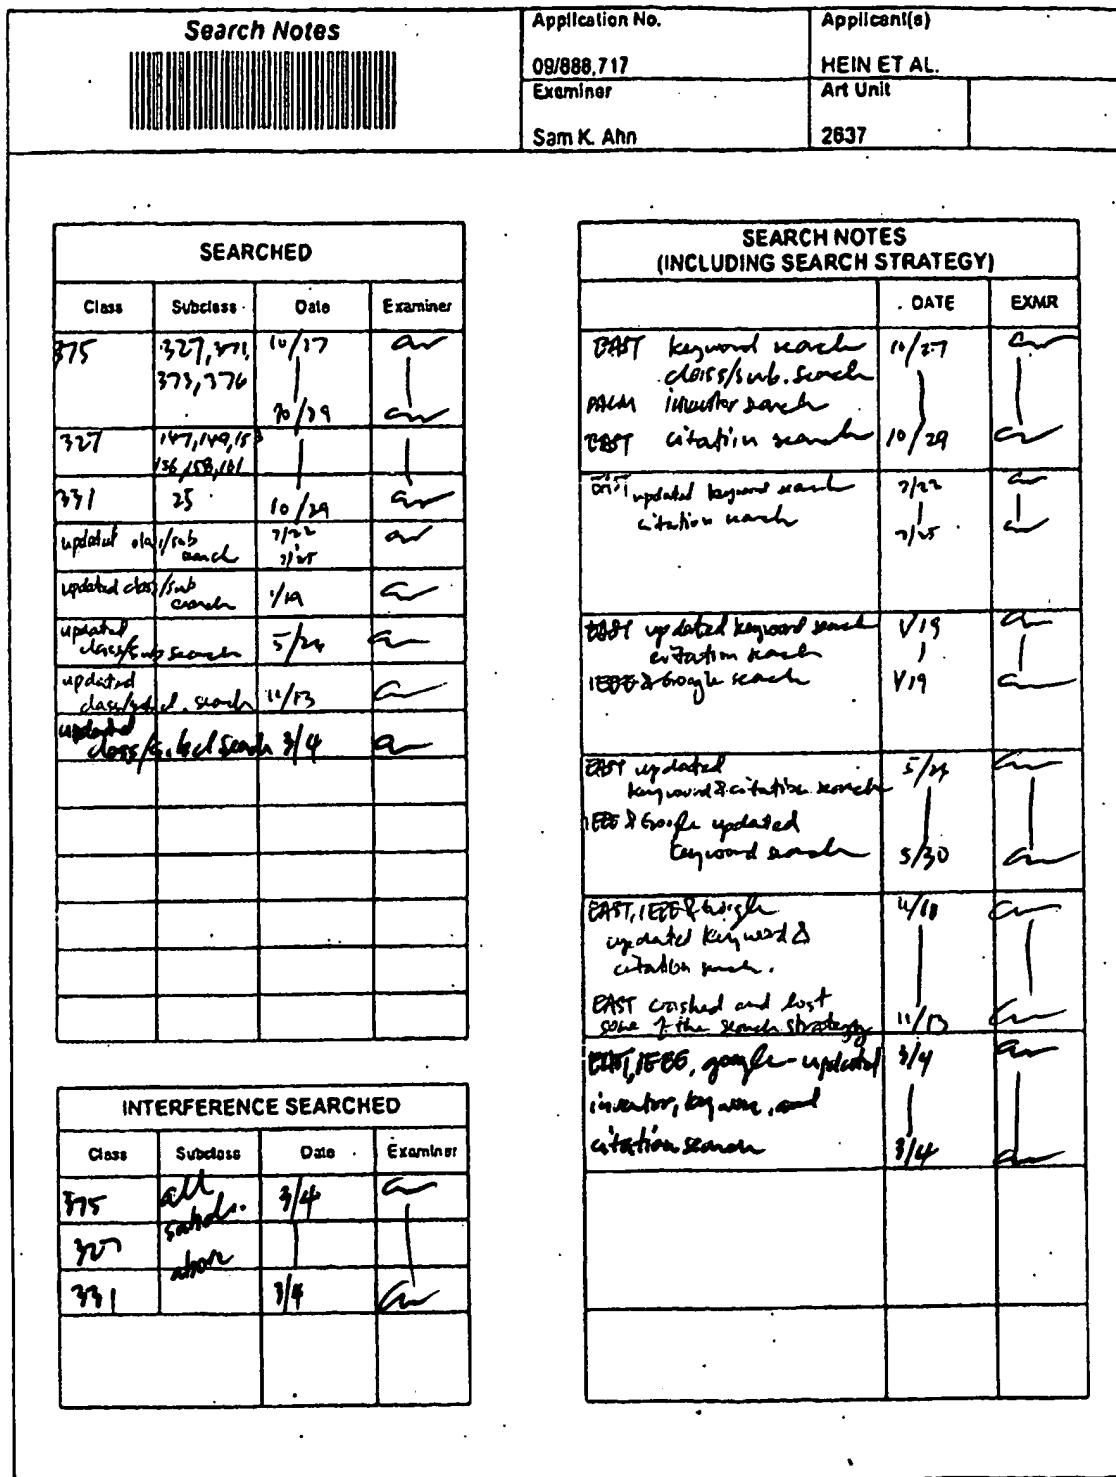 Search Notes
Application No.
09/888,717
Applicant(s)
HEIN ET AL.
Examiner
Sam K. Ahn
Art Unit
2637
SEARCHED
Class Subclass Date Examiner
375 327, 371, 10/27
373, 376
10/29
327 147, 149,
156, 158, 161
331 25 10/29
updated class/sub 7/22
search 7/25
updated class/sub
search 1/19
updated
class/sub search 5/24
updated
class/subcl. search 11/13
updated
class/subcl search 3/4
INTERFERENCE SEARCHED
Class Subclass Date Examiner
375 all 3/4
subcls.
327
above
331 3/4
SEARCH NOTES
(INCLUDING SEARCH STRATEGY)
DATE EXMR
EAST keyword search 10/27
class/sub. search
PALM inventor search
EAST citation search 10/29
EAST updated keyword search 7/22
citation search
7/25
EAST updated keyword search 1/19
citation search
IEEE & Google search 1/19
EAST updated 5/24
keyword & citation search
IEEE & Google updated
keyword search 5/30
EAST, IEEE & Google
updated keyword &
citation search.
EAST crashed and lost
some of the search strategy 11/13
EAST, IEEE, google - updated 3/4
inventor, keyword, and
citation search 3/4